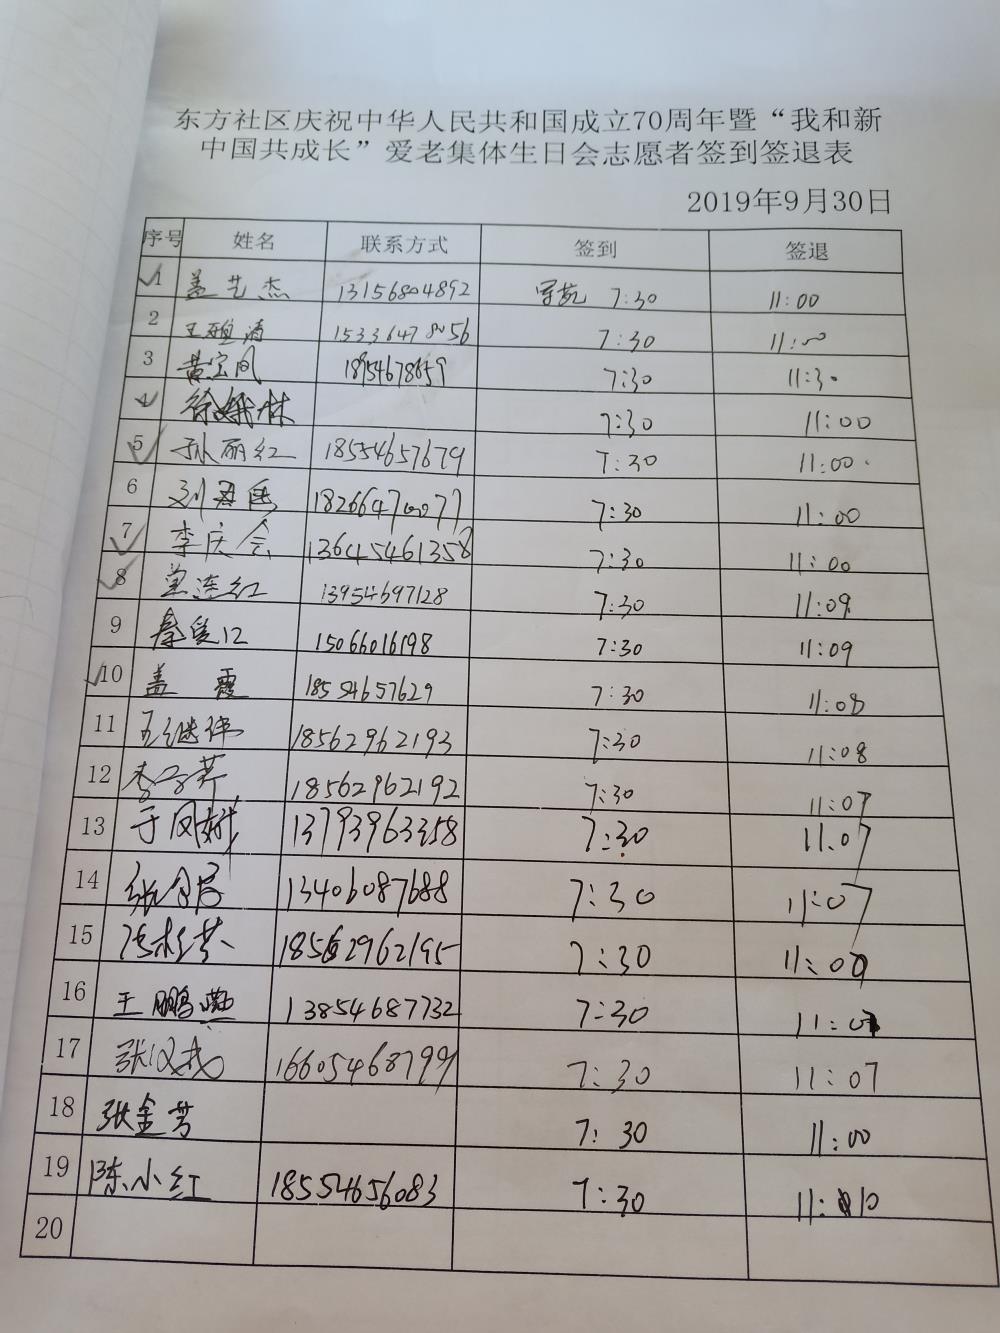 东方社区庆祝中华人民共和国成立70周年暨“我和新
中国共成长”爱老集体生日会志愿者签到签退表
2019年9月30日
序号 姓名 联系方式 签到 签退
1 盖艺杰 13156804892 7:30 11:00
2 王 涛 15336478056 7:30 11:00
3 黄宝凤 18954678659 7:30 11:30
4 徐 林 7:30 11:00
5 孙丽红 18554657679 7:30 11:00.
6 刘 18266470077 7:30 11:00
7 李庆会 13645461358 7:30 11:00
8 单连红 13954697128 7:30 11:09
9 秦爱12 15066016198 7:30 11:09
10 盖霞 18554657629 7:30 11:08
11 王继伟 18562962193 7:30 11:08
12 李 芹 18562962192 7:30 11:07
13 于凤娥 13793963358 7:30 11:07
14 张 13406087688 7:30 11:07
15 18562962195 7:30 11:00
16 王鹏燕 13854687732 7:30 11:07
17 张 16605468799 7:30 11:07
18 张金芳 7:30 11:00
19 陈小红 18554656083 7:30 11:10
20